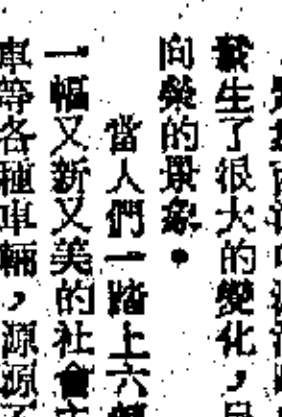 發生了很大的變化，
向榮的景象。
當人們一踏上六
一幅又新又美的社會
車等各種車輛，源源